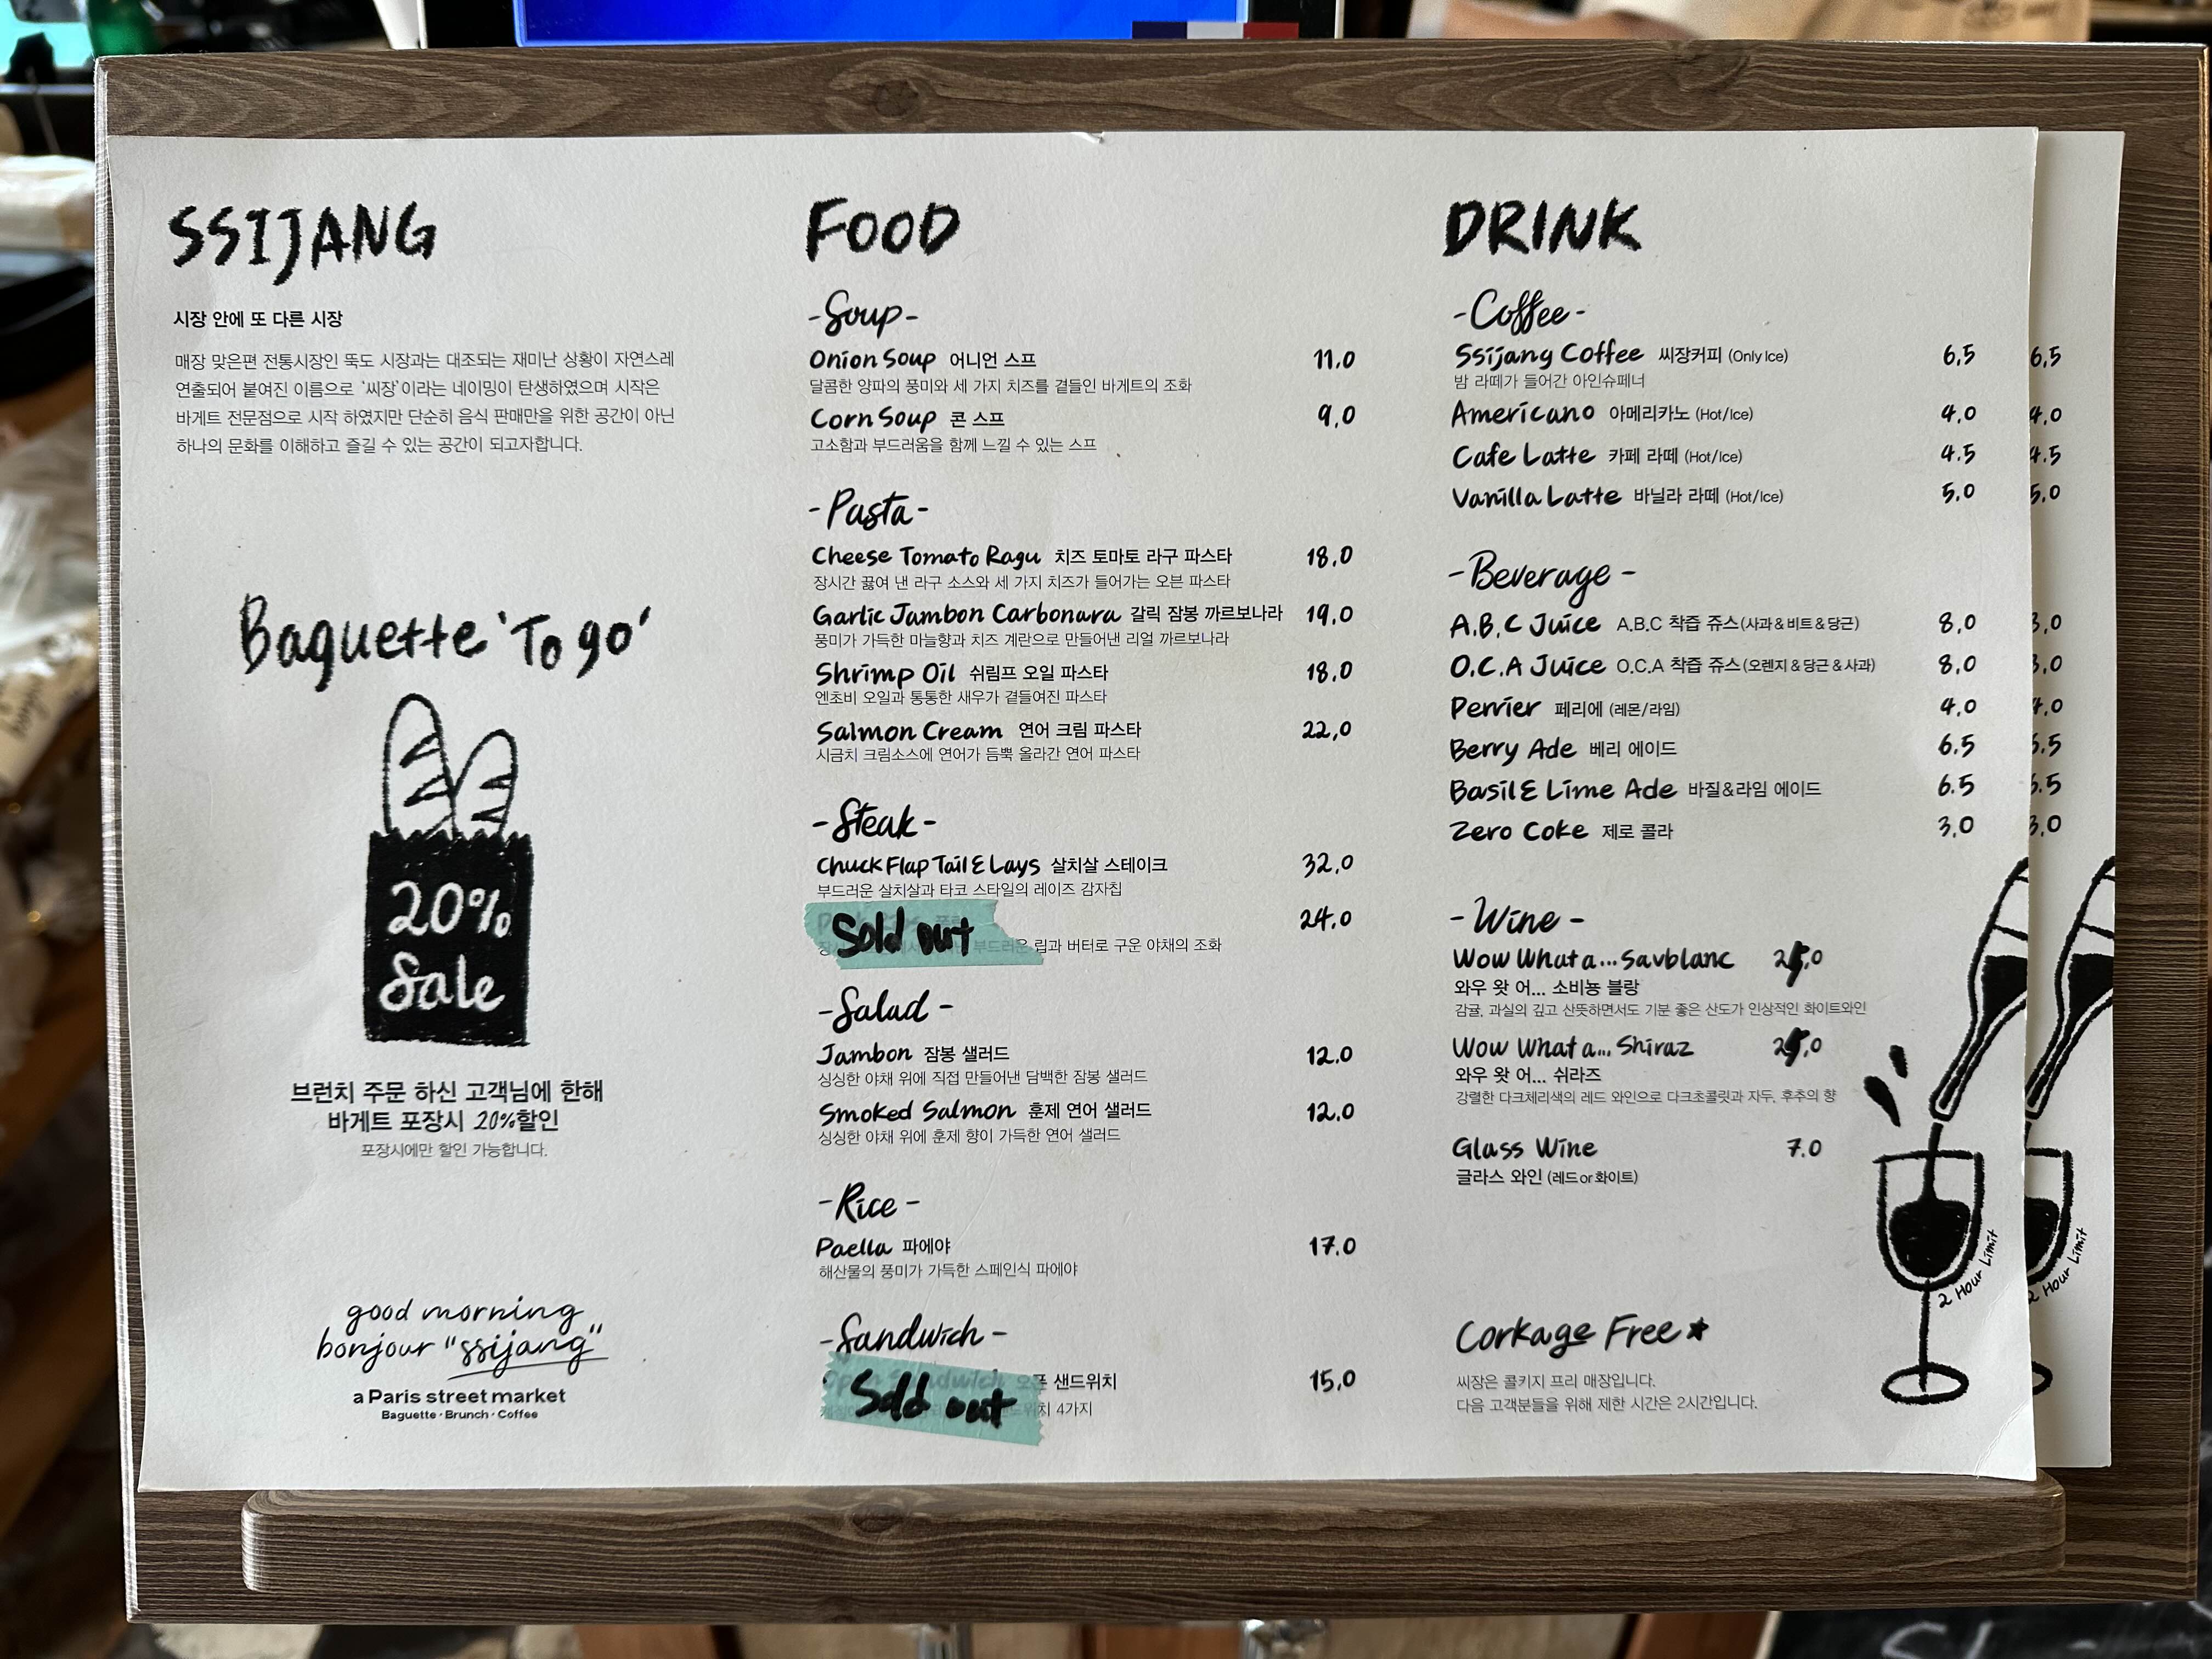 SSIJANG
시장 안에 또 다른 시장
매장 맞은편 전통시장인 뚝도 시장과는 대조되는 재미난 상황이 자연스레
연출되어 붙여진 이름으로 '씨장'이라는 네이밍이 탄생하였으며 시작은
바게트 전문점으로 시작 하였지만 단순히 음식 판매만을 위한 공간이 아닌
하나의 문화를 이해하고 즐길 수 있는 공간이 되고자합니다.
Baguette 'To go'
20%
Sale
브런치 주문 하신 고객님에 한해
바게트 포장시 20%할인
포장시에만 할인 가능합니다.
good morning
bonjour "ssijang"
a Paris street market
Baguette · Brunch · Coffee
FOOD
-Soup-
Onion Soup 어니언 스프 11.0
달콤한 양파의 풍미와 세 가지 치즈를 곁들인 바게트의 조화
Corn Soup 콘 스프 9.0
고소함과 부드러움을 함께 느낄 수 있는 스프
-Pasta-
Cheese Tomato Ragu 치즈 토마토 라구 파스타 18.0
장시간 끓여 낸 라구 소스와 세 가지 치즈가 들어가는 오븐 파스타
Garlic Jambon Carbonara 갈릭 잠봉 까르보나라 19.0
풍미가 가득한 마늘향과 치즈 계란으로 만들어낸 리얼 까르보나라
Shrimp Oil 쉬림프 오일 파스타 18.0
엔초비 오일과 통통한 새우가 곁들여진 파스타
Salmon Cream 연어 크림 파스타 22.0
시금치 크림소스에 연어가 듬뿍 올라간 연어 파스타
-Steak-
Chuck Flap Tail & Lays 살치살 스테이크 32.0
부드러운 살치살과 타코 스타일의 레이즈 감자칩
Sold out 24.0
부드러운 립과 버터로 구운 야채의 조화
-Salad-
Jambon 잠봉 샐러드 12.0
싱싱한 야채 위에 직접 만들어낸 담백한 잠봉 샐러드
Smoked Salmon 훈제 연어 샐러드 12.0
싱싱한 야채 위에 훈제 향이 가득한 연어 샐러드
-Rice-
Paella 파에야 17.0
해산물의 풍미가 가득한 스페인식 파에야
-Sandwich-
Open Sandwich 오픈 샌드위치 15.0
Sold out 4가지
DRINK
-Coffee-
Ssijang Coffee 씨장커피 (Only Ice) 6.5 6.5
밤 라떼가 들어간 아인슈페너
Americano 아메리카노 (Hot/Ice) 4.0 4.0
Cafe Latte 카페 라떼 (Hot/Ice) 4.5 4.5
Vanilla Latte 바닐라 라떼 (Hot/Ice) 5.0 5.0
-Beverage-
A.B.C Juice A.B.C 착즙 쥬스(사과&비트&당근) 8.0
O.C.A Juice O.C.A 착즙 쥬스(오렌지&당근&사과) 8.0
Perrier 페리에 (레몬/라임) 4.0 4.0
Berry Ade 베리 에이드 6.5
Basil & Lime Ade 바질&라임 에이드 6.5
Zero Coke 제로 콜라 3.0 3.0
-Wine-
Wow What a... Savblanc
와우 왓 어... 소비뇽 블랑
감귤, 과실의 깊고 산뜻하면서도 기분 좋은 산도가 인상적인 화이트와인
Wow What a... Shiraz
와우 왓 어... 쉬라즈
강렬한 다크체리색의 레드 와인으로 다크초콜릿과 자두, 후추의 향
Glass Wine 7.0
글라스 와인 (레드or화이트)
2 Hour Limit 2 Hour Limit
Corkage Free★
씨장은 콜키지 프리 매장입니다.
다음 고객분들을 위해 제한 시간은 2시간입니다.